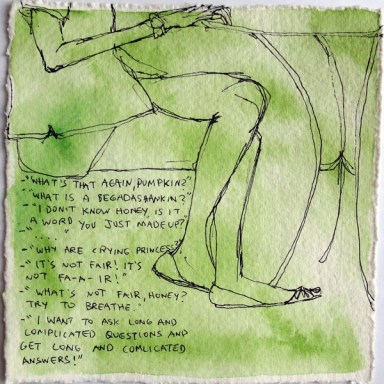 -"WHAT'S THAT AGAIN, PUMPKIN?"
"WHAT IS A BEGADASHANKIN?"
-"I DON'T KNOW HONEY, IS IT
A WORD YOU JUST MADE UP?"
-". . . ."
-"WHY ARE CRYING PRINCESS?"
-"IT'S NOT FAIR! IT'S
NOT FA-A-IR!"
-"WHAT'S NOT FAIR, HONEY?
TRY TO BREATHE."
-"I WANT TO ASK LONG AND
COMPLICATED QUESTIONS AND
GET LONG AND COMLICATED
ANSWERS!"